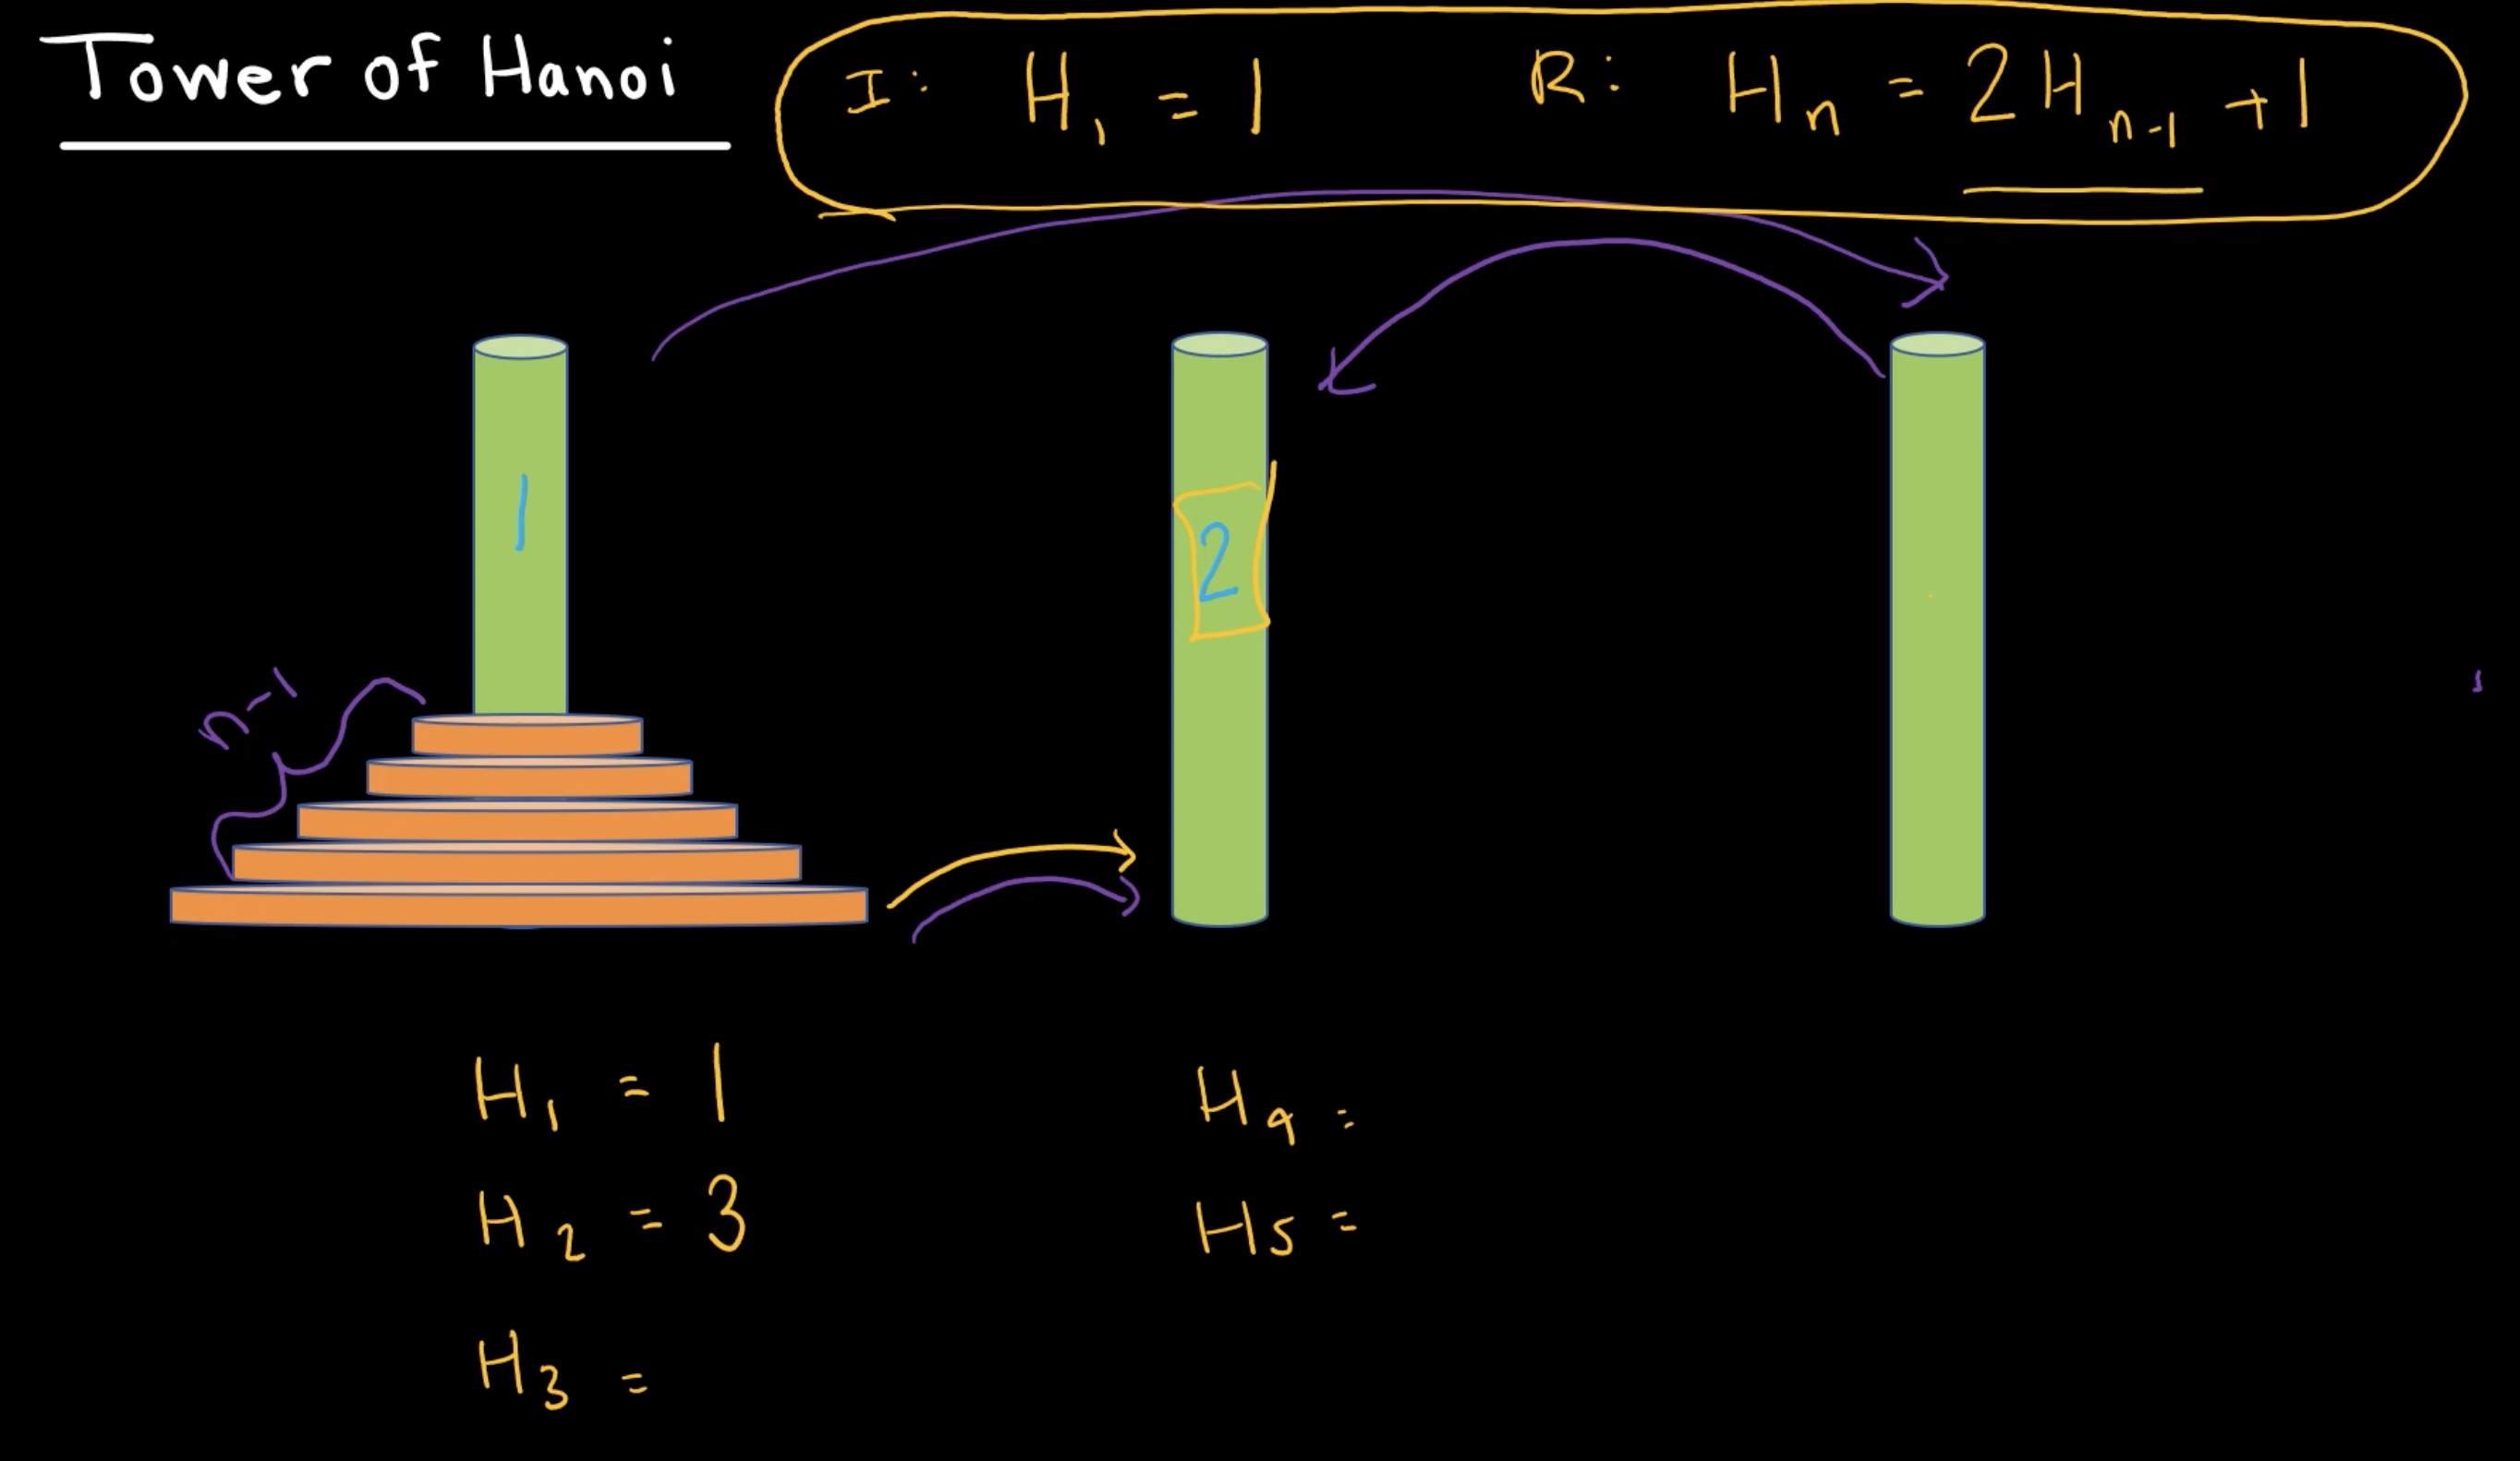 Tower of Hanoi
I: H₁ = 1 R: Hₙ = 2Hₙ₋₁ + 1
1
2
n-1
H₁ = 1
H₂ = 3
H₃ =
H₄ =
H₅ =